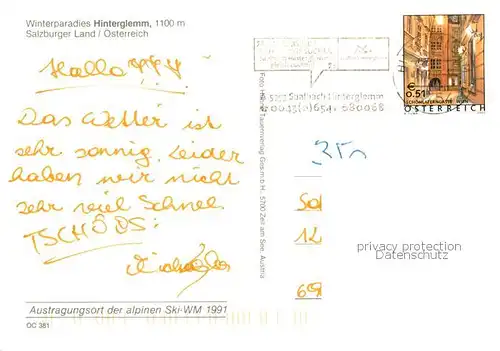 Winterparadies Hinterglemm, 1100 m
Salzburger Land / Österreich
Hallo
Das Wetter ist
sehr sonnig. Leider
haben wir nicht
sehr viel Schnee.
TSCHÖDS:
Austragungsort der alpinen Ski-WM 1991
OC 381
Tauernverlag Ges.m.b.H., 5700 Zell am See, Austria
Saalbach Hinterglemm
€ 0,51
SCHÖNLATERNGASSE WIEN
ÖSTERREICH
Sal
12
69
privacy protection
Datenschutz